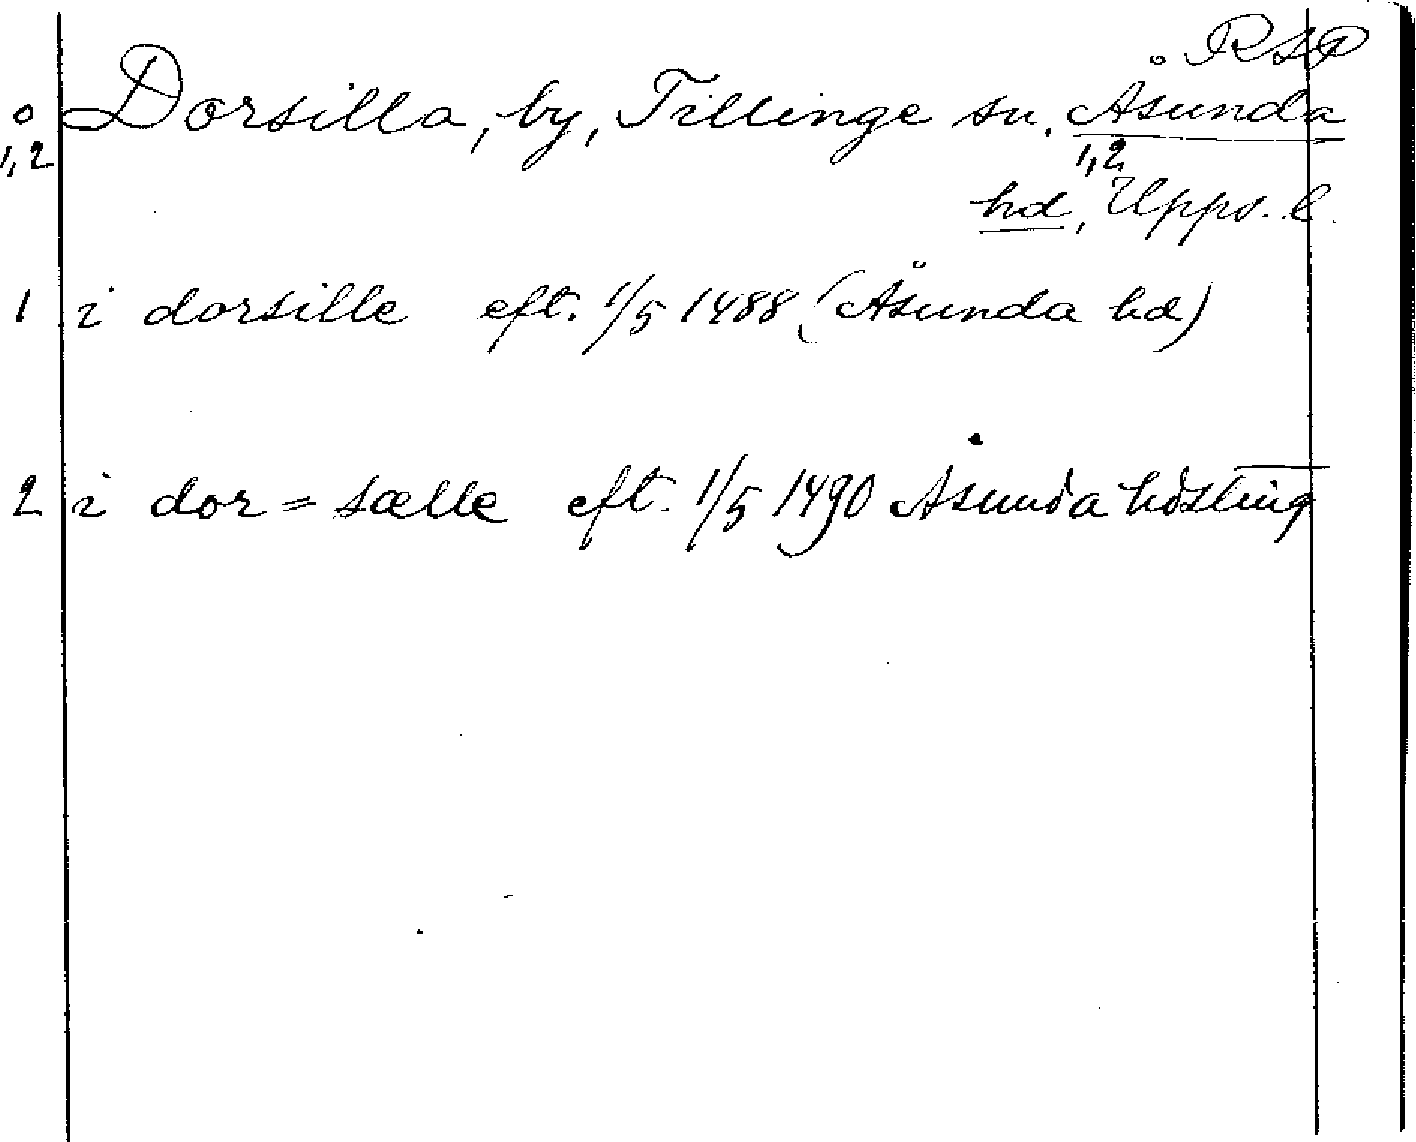 RSP
0 Dorsilla, by, Tillinge sn. Åsunda
1,2 1,2
hd, Upps. l.
1 i dorsille eft. 1/5 1488 (Åsunda hd)
2 i dor = sælle eft. 1/5 1490 Åsunda